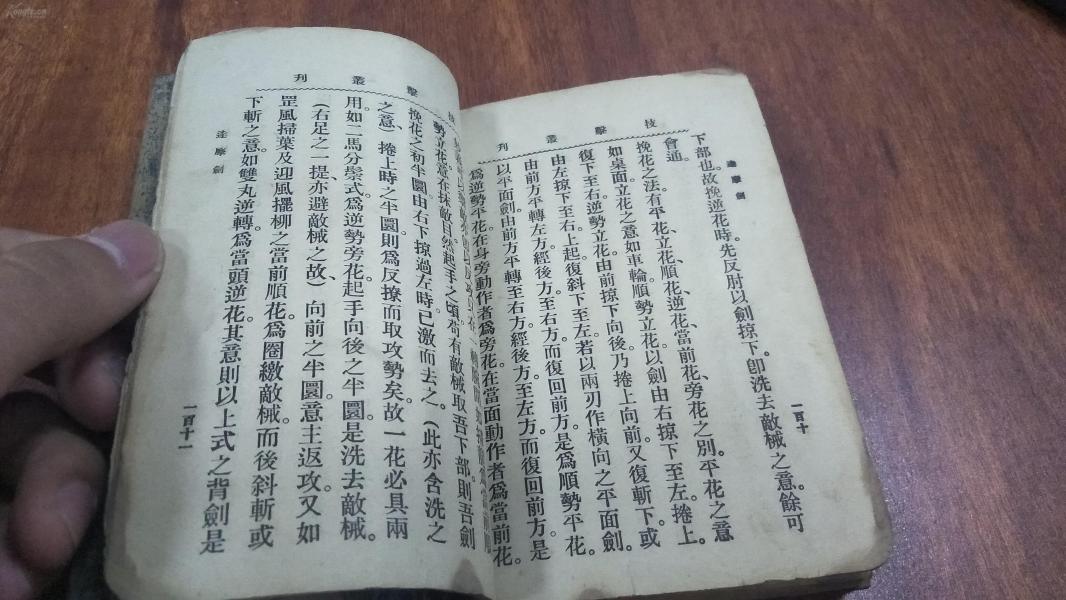 技擊叢刊
達摩劍
一百十
下部也。故挽逆花時。先反肘以劍掠下。卽洗去敵械之意。餘可
會通。
挽花之法。有平花、立花、順花、逆花、當前花、旁花之別。平花之意
如桌面。立花之意如車輪。順勢立花。以劍由右掠下至左。捲上。
復下至右。逆勢立花。由前掠下向後。乃捲上向前。又復斬下。或
由左掠下至右。上起復斜下至左。若以兩刃作橫向之平面劍。
由前方平轉左方。經後方至右方。而復回前方。是爲順勢平花。
以平面劍由前方平轉至右方。經後方至左方。而復回前方。是
爲逆勢平花。在身旁動作者爲旁花。在當面動作者爲當前花。
技擊叢刊
勢立花。意在抹敵。自然起手之頃。苟有敵械取吾下部。則吾劍
挽花之初半圜。由右下掠過左時。已激而去之。(此亦含洗之
之意)捲上時之半圜。則爲反撩而取攻勢矣。故一花必具兩
用。如二馬分鬃式爲逆勢旁花。起手向後之半圜。是洗去敵械。
(右足之一提、亦避敵械之故、)向前之半圜。意主返攻。又如
罡風掃葉及迎風擺柳之當前順花。爲圈繳敵械。而後斜斬或
下斬之意。如雙丸逆轉。爲當頭逆花。其意則以上式之背劍是
達摩劍
一百十一